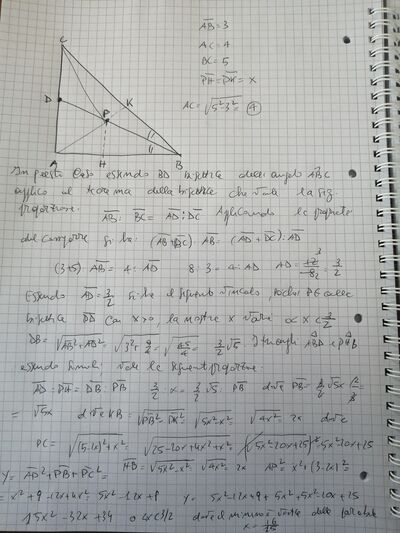 C
D
P
K
A
H
B
AB = 3
AC = 4
BC = 5
PH = PK = x
AC = √5²-3² = 4
In questo caso essendo BD bisettrice dell'angolo ABC
applico il teorema della bisettrice che vale la seg.
proporzione: AB : BC = AD : DC Applicando le proprietà
del comporre si ha: (AB+BC) : AB = (AD+DC) : AD
(3+5) : AB = 4 : AD 8 : 3 = 4 : AD AD = 12/8 = 3/2
Essendo AD = 3/2 si ha il seguente vincolo, poiché P è sulla
bisettrice con x>0, la nostra x varia 0<x<3/2
DB = √AB²+AD² = √3²+9/4 = √45/4 = 3/2 √5. I triangoli ABD e PHB
essendo simili vale la seguente proporzione
AD : PH = DB : PB 3/2 : x = 3/2 √5 : PB dove PB =
= √5x dove KB = √PB²-PK² = √5x²-x² = √4x² = 2x dove
PC = √(5-2x)²+x² = √25-20x+4x²+x² = 5x²-20x+25
HB = √5x²-x² = √4x² = 2x AP² = x²+(3-2x)² =
y = AP²+PB²+PC² =
= x²+9-12x+4x² = 5x²-12x+9 y = 5x²-12x+9+5x²+5x²-20x+25
15x²-32x+34 0<x<3/2 dove il minimo vertice della parabola
x = 16/15